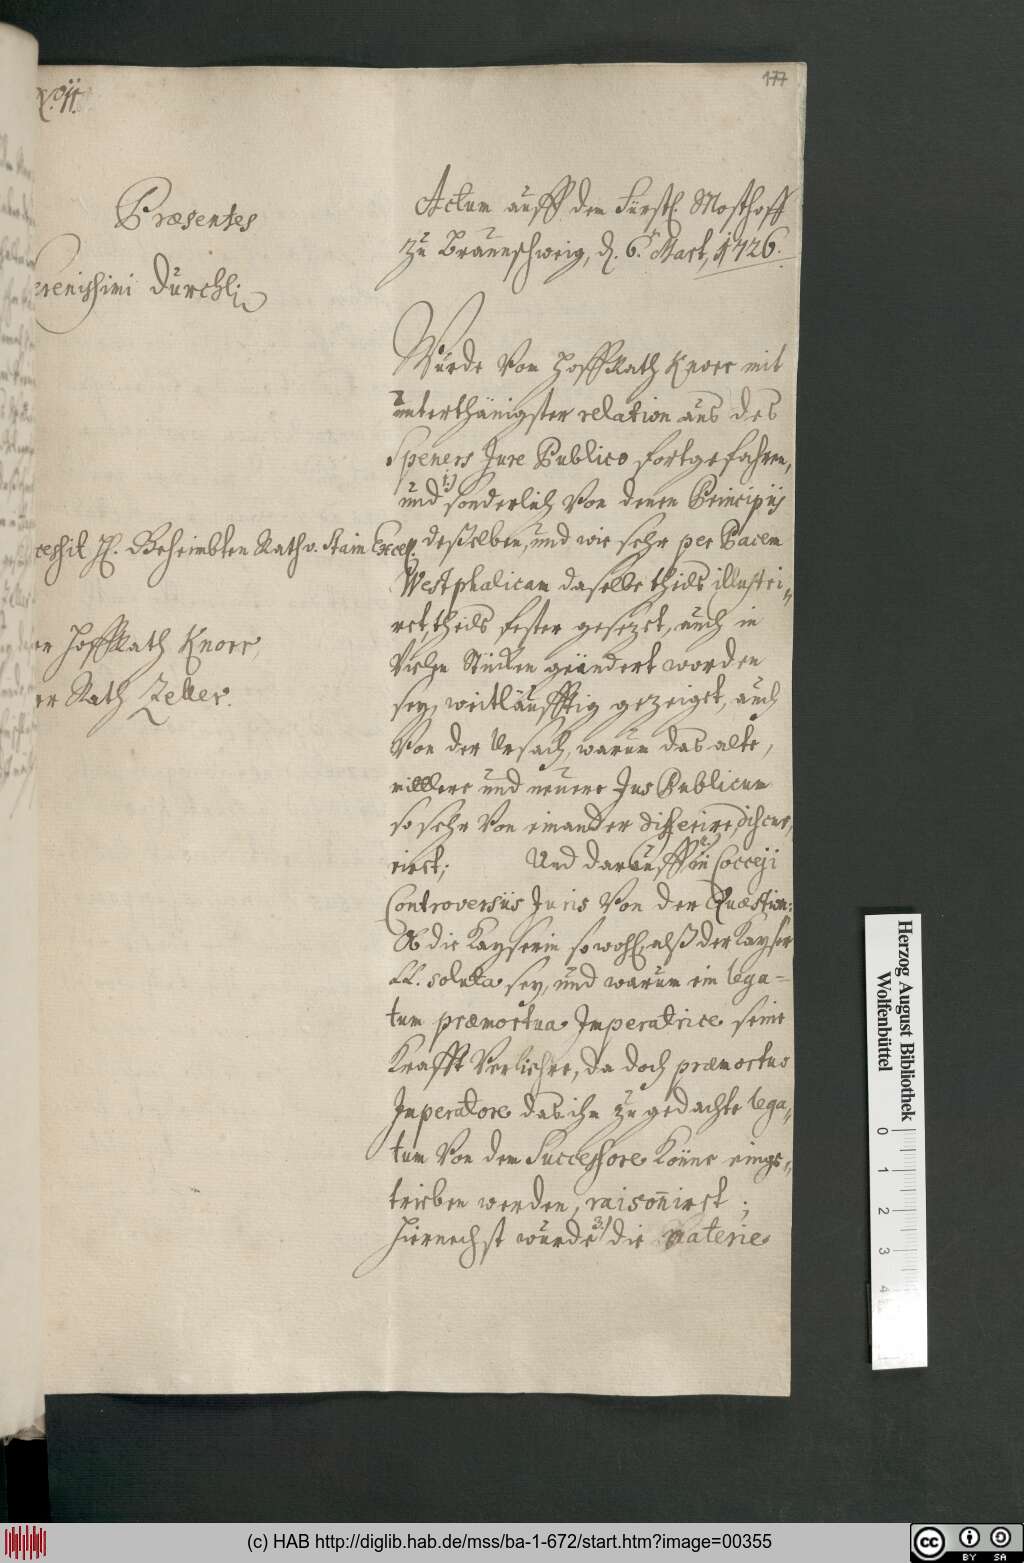 177
Præsentes
Serenissimi Durchl:
H. Geheimbten Rath v. Stain Excel.
Hoffrath Knorr,
Rath Zeller.
Actum auff dem Fürstl. Mosthoff
zu Braunschweig, d. 6. Mart, 1726.
Wurde von Hoffrath Knorr mit
unterthänigster relation aus des
Speners Jure Publico fortgefahren,
und 1.) sonderlich von denen Principijs
deßelben, und wie sehr per Pacem
Westphalicam daselbe theils illustri-
ret, theils fester gesezet, auch in
vielen Stücken geändert worden
sey, weitläufftig gezeiget, auch
von der Ursach, warum das alte,
mittlere und neuere Jus Publicum
so sehr von einander differire, discur-
riret; Und darauff 2.) in Cocceji
Controversiis Juris von der Quæstion:
Ob die Kayserin so wohl, alß der Kayser
LL. soluta sey, und warum ein lega-
tum præmortua Imperatrice seine
Krafft verliehre, da doch præmortuo
Imperatore das ihm zu gedachte lega-
tum von dem Successore könne einge-
trieben werden, raisoniret;
Hiernechst wurde 3.) die materie
Herzog August Bibliothek
Wolfenbüttel
0
1
2
3
4
(c) HAB http://diglib.hab.de/mss/ba-1-672/start.htm?image=00355
cc BY SA